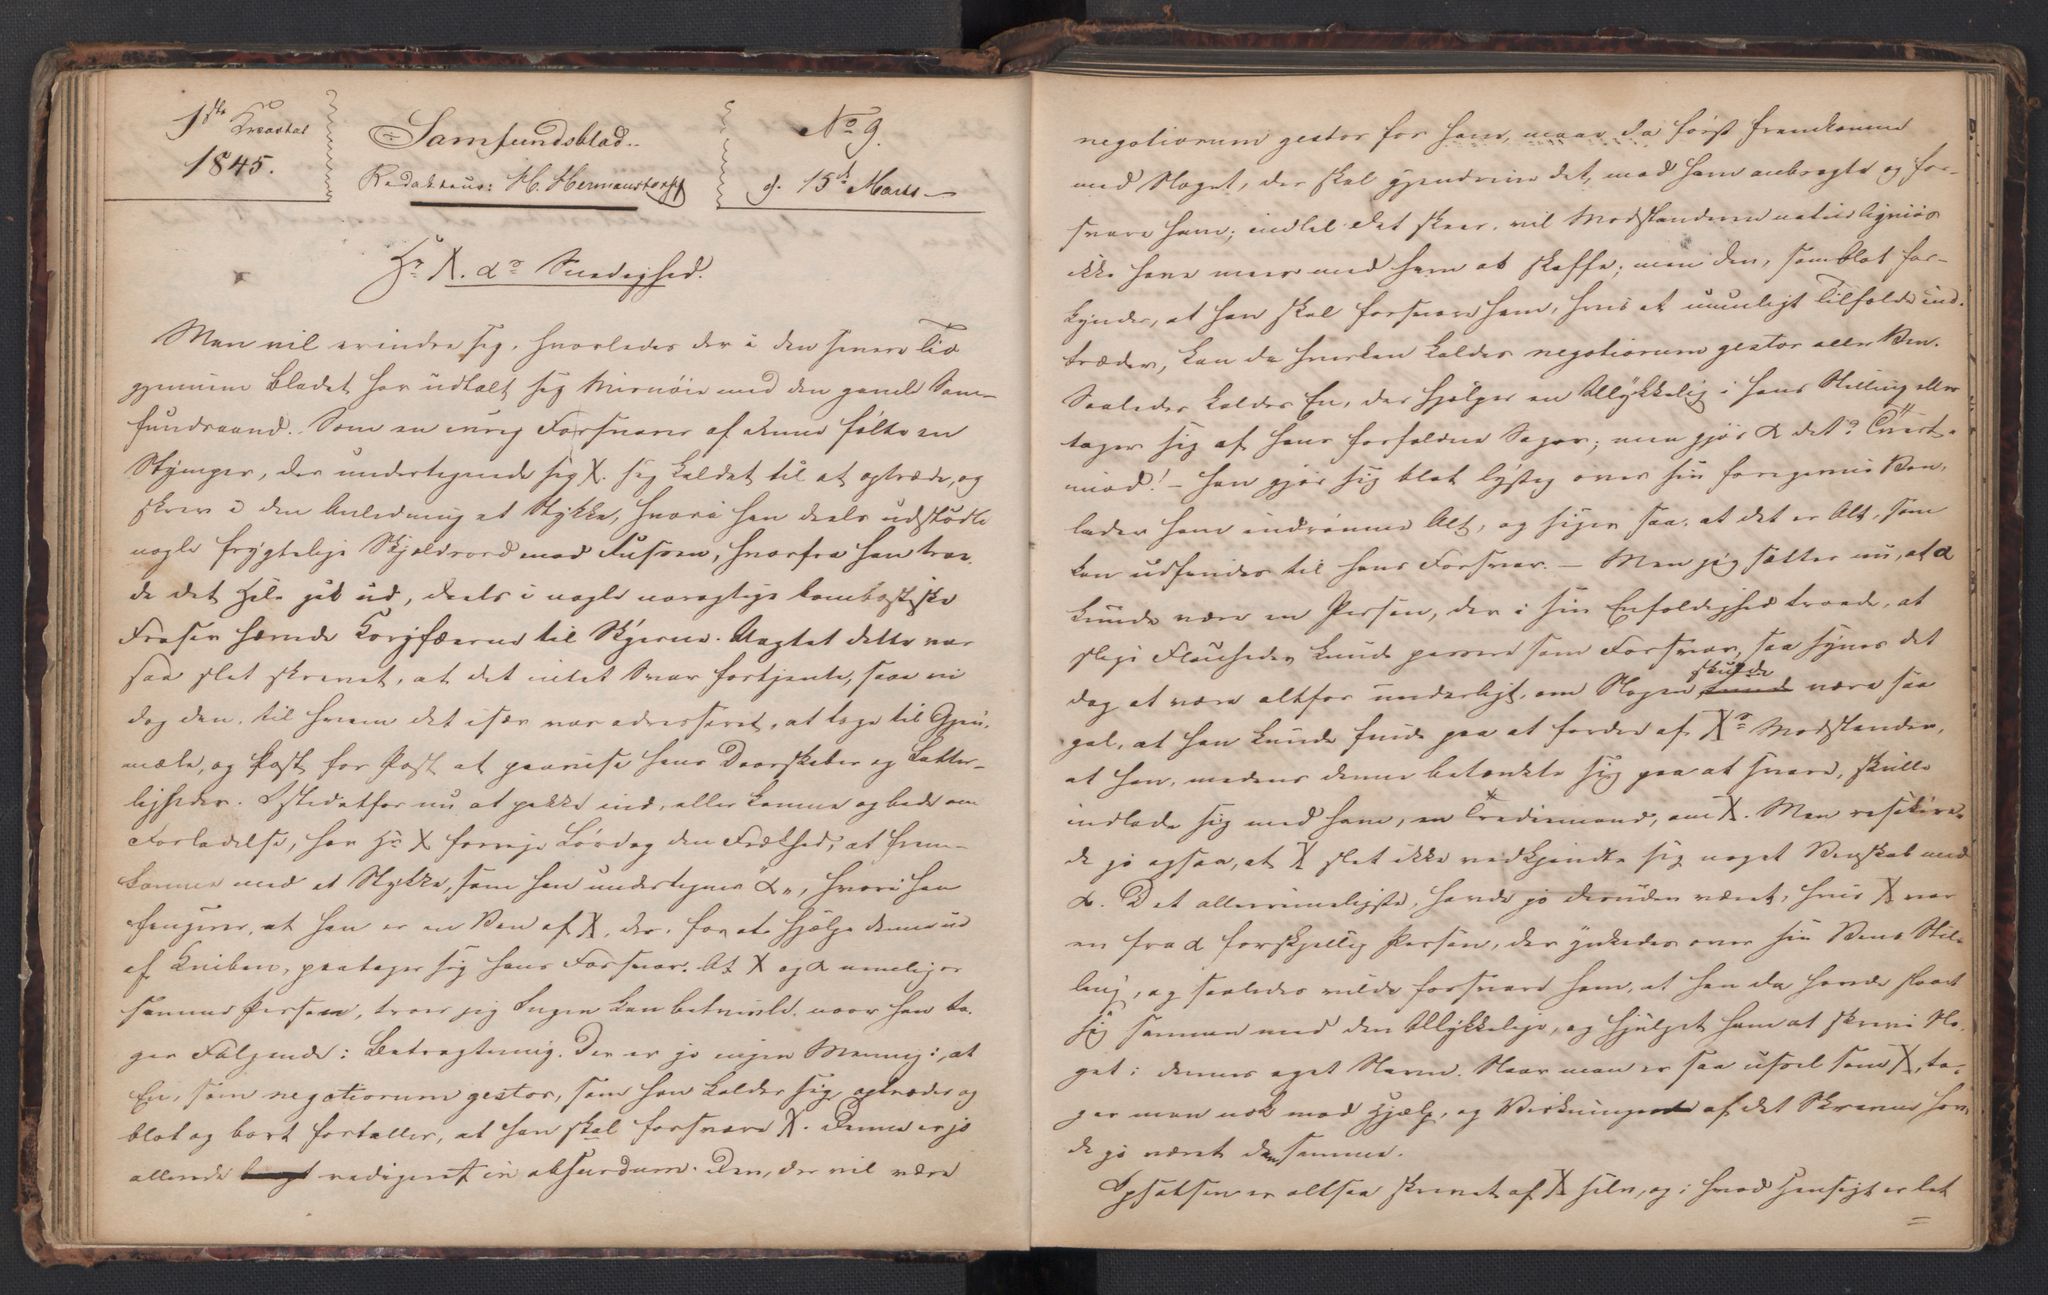 1ste Kvartal
1845.
Samfundsblad.
Redakteur: H. Hermanstorff
No 9.
d. 15de Marts
Hr X. drs Snedighed.
Man vil erindre sig, hvorledes der i den senere Tid
gjennem Bladet har udtalt sig Misnøie med den gamle Sam-
fundsaand. Som en ivrig Forsvarer af denne følte en
Stymper, der undertegnede sig X. sig kaldet til at optræde, og
skrev i den Anledning et Stykke, hvori han deels udstødte
nogle frygtelige Skjældsord mod Fusoren, hvorfra han troe-
de det Hele gik ud, deels i nogle voragtige bombastiske
Fraser hævede Coryfæerne til Skyerne. Uagtet dette var
saa slet skrevet, at det intet Svar fortjente, saae vi
dog den, til hvem det især var adresseret, at tage til Gjen-
mæle, og Post for Post at paavise hans Daarskaber og Latter-
ligheder. Istedetfor nu at pakke ind, eller komme og bede om
Forladelse, har Hr X forrige Løverdag den Frækhed, at frem-
komme med et Stykke, som han undertegner α, hvori han
fingerer, at han er en Ven af X, der, for at hjælpe denne ud
af Kniben, paatager sig hans Forsvar. At X og α ere een og
samme Person, troer jeg Ingen kan betvivle, naar han ta-
ger Følgende i Betragtning. Der er jo ingen Mening i, at
En, som negotiorum gestor, som han kalder sig, optræder og
blot og bart fortæller, at han skal forsvare X. Denne er jo
allerede redigeret in absurdum. Den, der vil være
negotiorum gestor for ham, maa da først fremkomme
med Noget, der skal gjendrive det, mod ham anbragte og for-
svare ham; indtil det skeer, vil Modstanderen naturligviis
ikke have mere med ham at skaffe; men den, som blot for-
kynder, at han skal forsvare ham, hvis et umuligt Tilfælde ind-
træder, kan da hverken kaldes negotiorum gestor eller Ven.
Saaledes kaldes En, der hjælper en Ulykkelig i hans Stilling eller
tager sig af hans forfaldne Sager; men gjør α det? Tvert-
imod! — han gjør sig blot lystig over sin foregivne Ven,
lader ham indrømme Alt, og siger saa, at det er Alt, som
kan udfindes til hans Forsvar. — Men jeg sætter nu, at α
kunde være en Person, der i sin Enfoldighed troede, at
slige Flauheder kunde passere som Forsvar, saa synes det
dog at være altfor underligt, om Nogen skulde være saa
gal, at han kunde finde paa at fordre af Xs Modstander,
at han, medens denne betænkte sig paa at svare, skulle
indlade sig med ham, en Trediemand, om X. Man risikere-
de jo ogsaa, at X slet ikke vedkjendte sig noget Venskab med
α. Det allerrimeligste, havde jo desuden været, hvis X var
en fra α forskjellig Person, der ynkedes over sin Vens Stil-
ling, og saaledes vilde forsvare ham, at han da havde slaaet
sig sammen med den Ulykkelige, og hjulpet ham at skrive No-
get i dennes eget Navn. Naar man er saa ussel som X, ta-
ger man nok mod Hjælp, og Virkningen af det Skrevne hav-
de jo været den samme.
Opsatsen er altsaa skrevet af X selv, og i hvad Hensigt er let